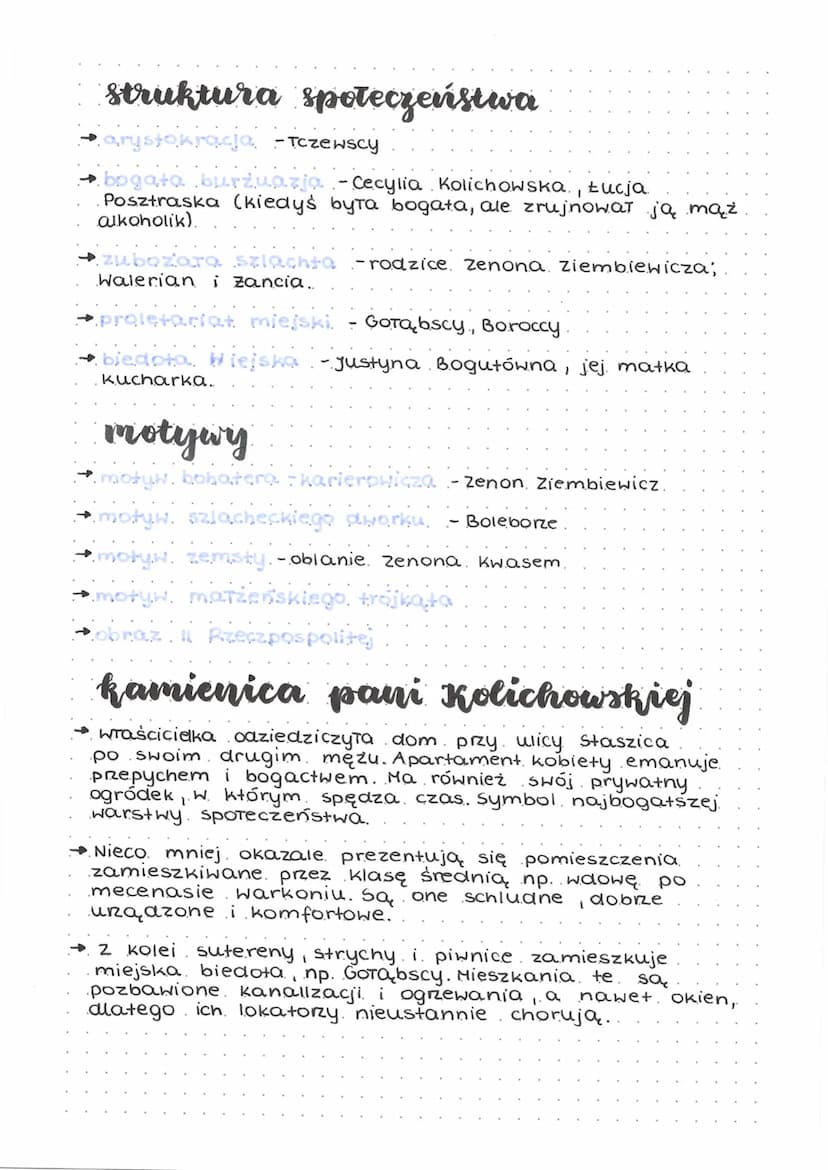 struktura społeczeństwa
→ arystokracja - Tczewscy
→ bogata burżuazja - Cecylia Kolichowska, Łucja
Posztraska (kiedyś była bogata, ale zrujnował ją mąż
alkoholik)
→ zubożała szlachta - rodzice Zenona Ziembiewicza;
Walerian i Żancia.
→ proletariat miejski - Gołąbscy, Boroccy
→ biedota wiejska - Justyna Bogutówna, jej matka
kucharka.
motywy
→ motyw bohatera - karierowicza - Zenon Ziembiewicz
→ motyw szlacheckiego dworku - Boleborze
→ motyw zemsty - oblanie Zenona kwasem
→ motyw małżeńskiego trójkąta
→ obraz II Rzeczpospolitej
kamienica pani Kolichowskiej
→ właścicielka odziedziczyła dom przy ulicy Staszica
po swoim drugim mężu. Apartament kobiety emanuje
przepychem i bogactwem. Ma również swój prywatny
ogródek, w którym spędza czas. Symbol najbogatszej
warstwy społeczeństwa.
→ Nieco mniej okazale prezentują się pomieszczenia
zamieszkiwane przez klasę średnią np. wdowę po
mecenasie Warkoniu. Są one schludne, dobrze
urządzone i komfortowe.
→ Z kolei sutereny, strychy i piwnice zamieszkuje
miejska biedota, np. Gołąbscy. Mieszkania te są
pozbawione kanalizacji i ogrzewania, a nawet okien,
dlatego ich lokatorzy nieustannie chorują.